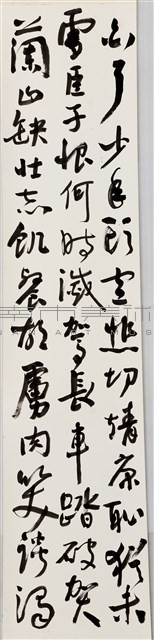 白了少年头空悲切靖康耻犹未
雪臣子恨何时灭驾长车踏破贺
兰山缺壮志飢餐胡虏肉笑谈渴